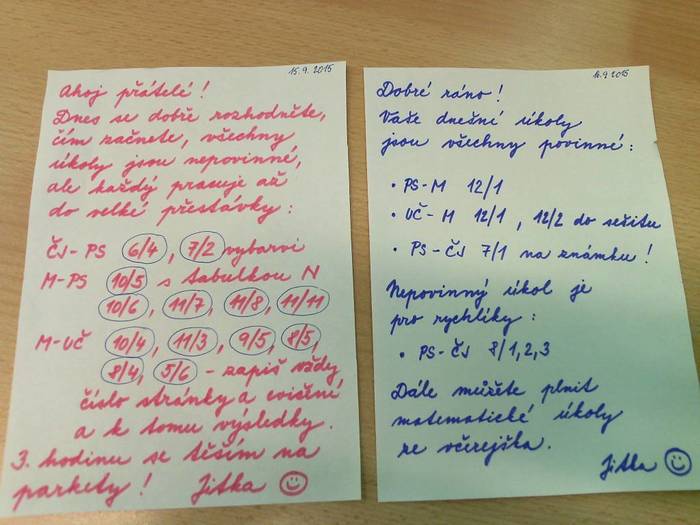 15.9.2015
Ahoj přátelé!
Dnes se dobře rozhodněte,
čím začnete, všechny
úkoly jsou nepovinné,
ale každý pracuje až
do velké přestávky:
ČJ-PS 6/4, 7/2 vybarvi
M-PS 10/5 s tabulkou N
10/6, 11/7, 11/8, 11/11
M-UČ 10/4, 11/3, 9/5, 8/5,
8/4, 5/6 - zapiš vždy
číslo stránky a cvičení
a k tomu výsledky.
3. hodinu se těším na
parkety! Jitka
16.9.2015
Dobré ráno!
Vaše dnešní úkoly
jsou všechny povinné:
• PS-M 12/1
• UČ-M 12/1, 12/2 do sešitu
• PS-ČJ 7/1 na známku!
Nepovinný úkol je
pro rychlíky:
• PS-ČJ 8/1,2,3
Dále můžete plnit
matematické úkoly
ze včerejška.
Jitka